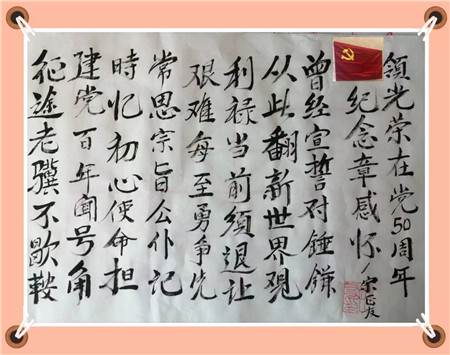 領光荣在党50周年
纪念章感怀/宋正友
曾经宣誓对錘鎌
从此翻新世界观
利禄当前须退让
艰难每至勇争先
常思宗旨公仆记
時忆初心使命担
建党百年闻号角
征途老骥不歇鞍